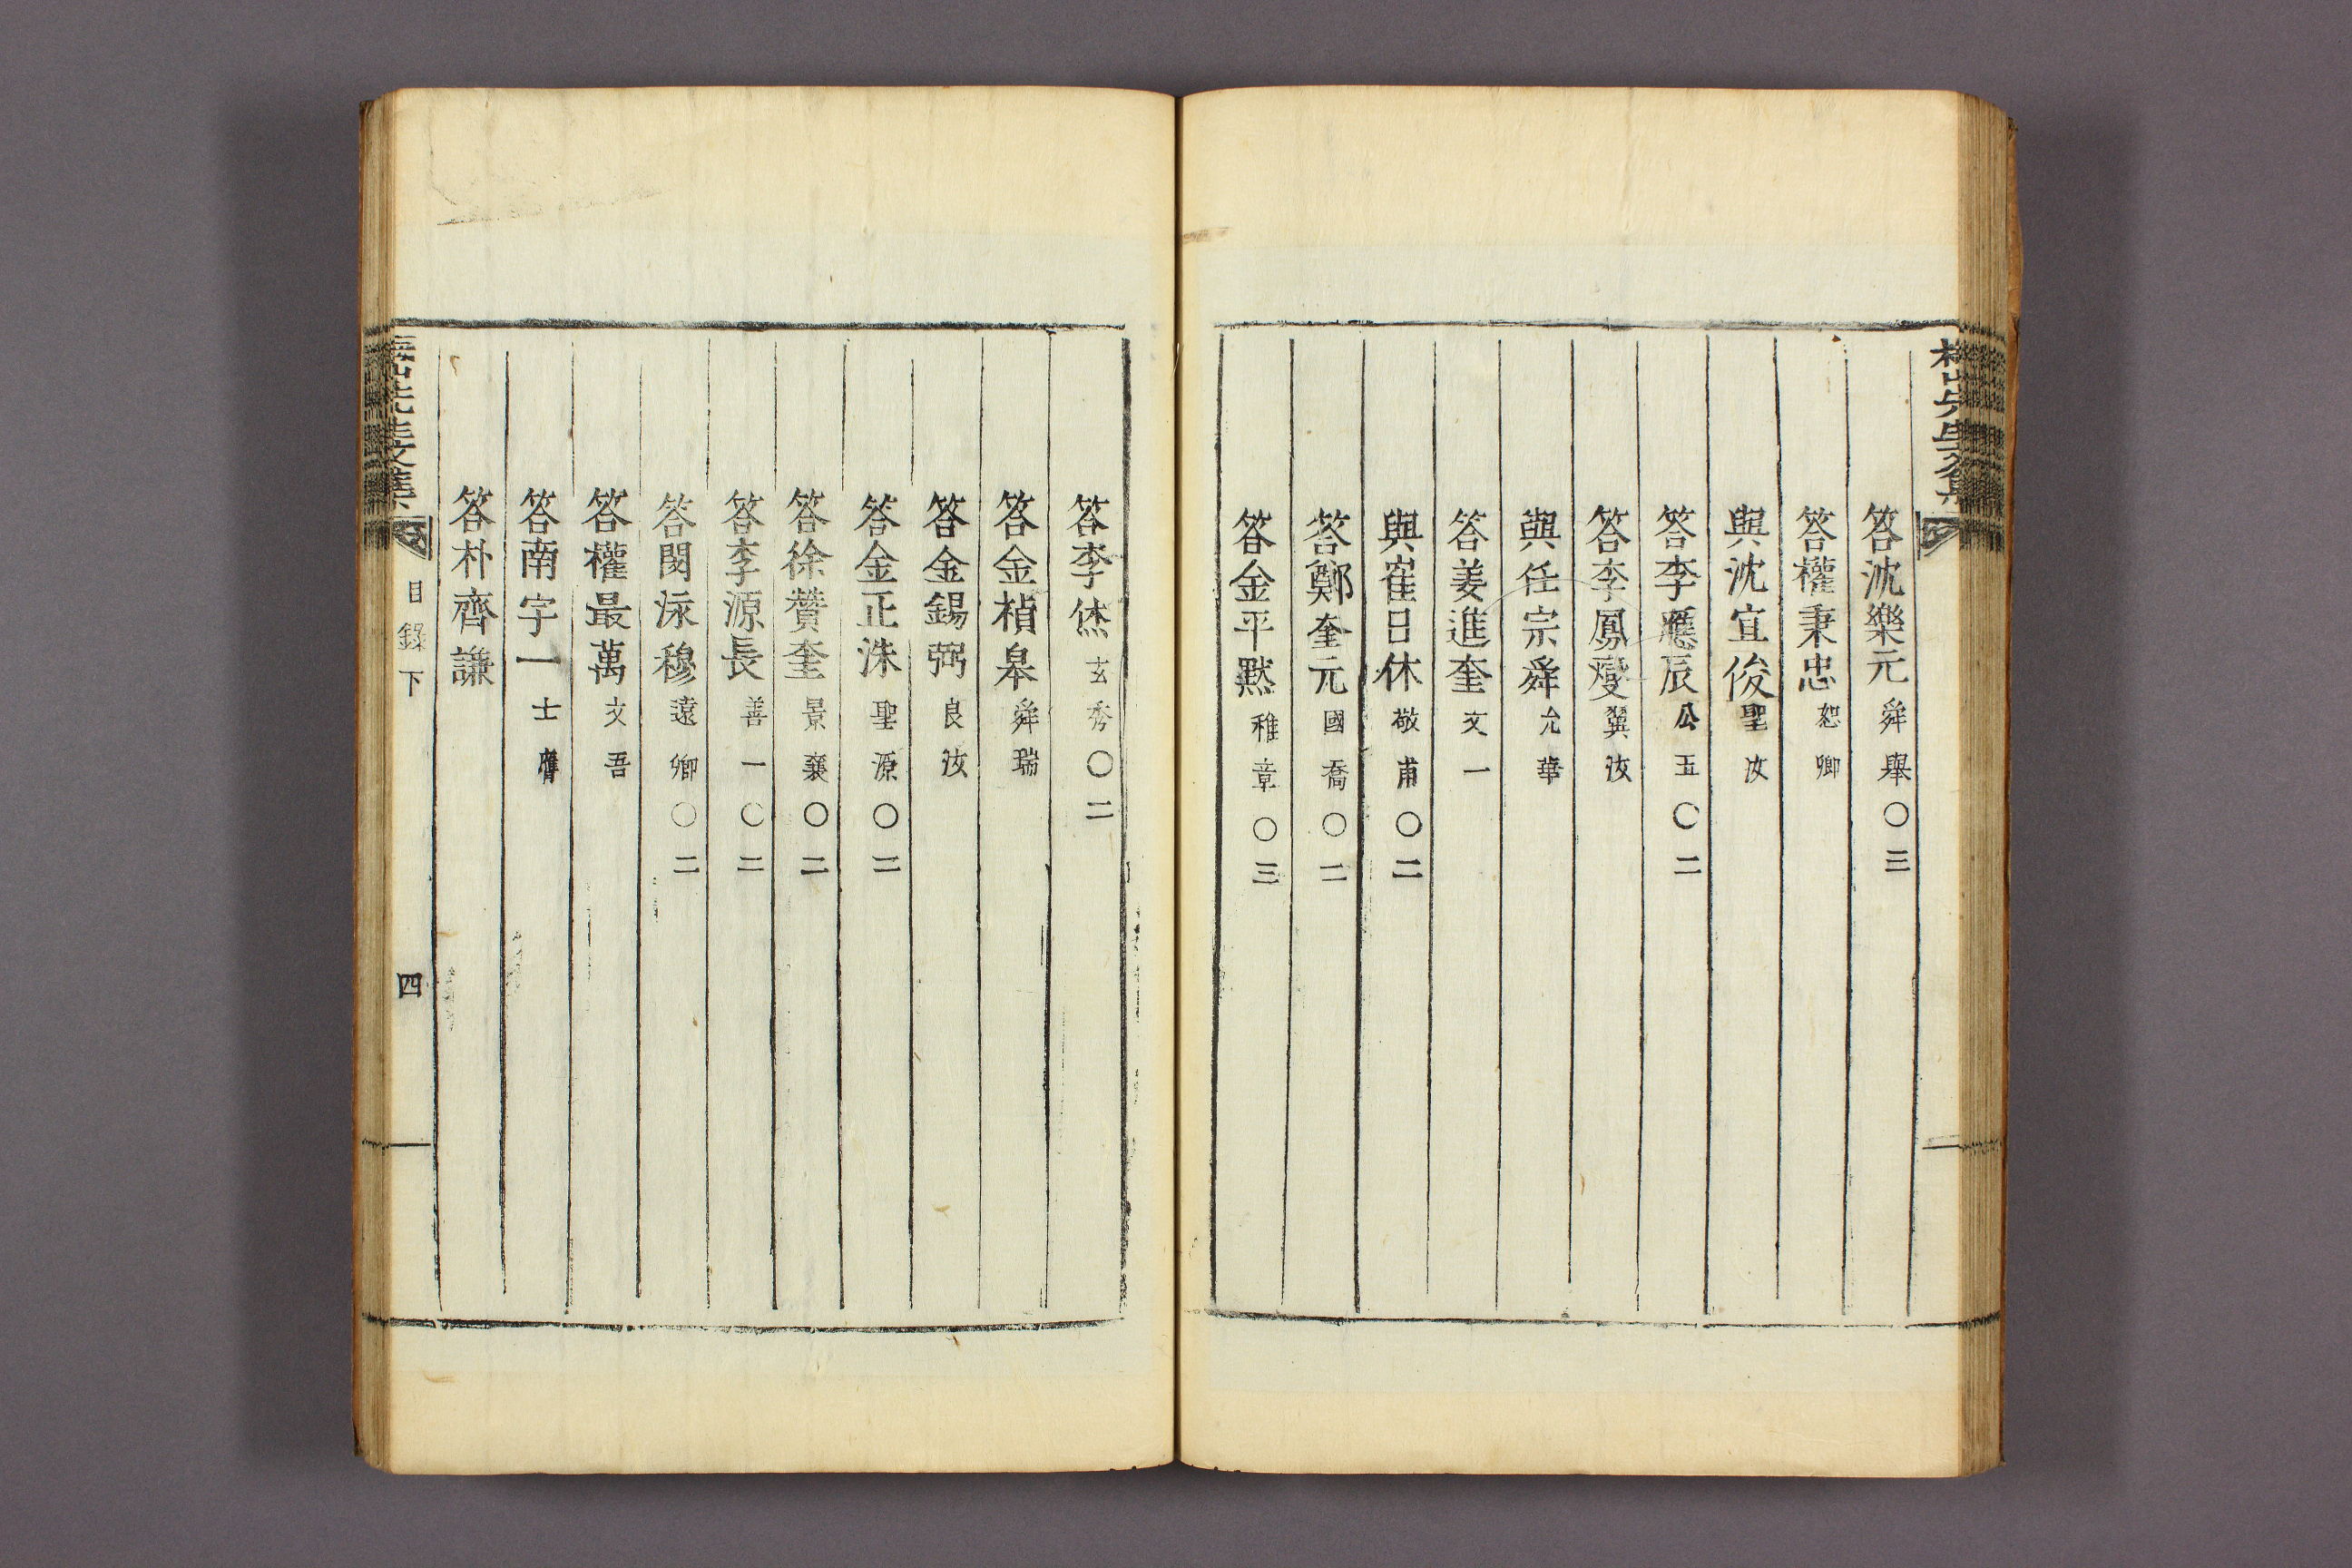 答沈樂元舜擧〇三
答權秉忠恕卿
與沈宜俊聖汝
答李應辰公五〇二
答李鳳燮翼汝
與任宗舜允華
答姜進奎文一
與崔日休敬甫〇二
答鄭奎元國喬〇二
答金平默稚章〇三
答李烋玄秀〇二
答金楨皋舜瑞
答金錫弼良汝
答金正洙聖源〇二
答徐贊奎景襄〇二
答李源長善一〇二
答閔泳穆遠卿〇二
答權最萬文吾
答南宇一士膺
答朴齊謙
先生文集
目錄下
四